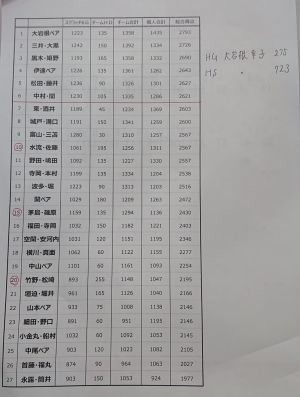 スクラッチHG チームHD チーム合計 個人合計 総合得点
1 大岩根ペア 1223 135 1358 1435 2793
2 三井・大湯 1242 150 1392 1334 2726
3 黒木・姫野 1193 165 1358 1332 2690
4 伊達ペア 1226 135 1361 1282 2643
5 松田・藤井 1236 90 1326 1301 2627
6 中村・間 1230 105 1335 1286 2621
7 東・酒井 1189 45 1234 1369 2603
8 城戸・湯口 1191 150 1341 1259 2600
9 富山・三笘 1280 30 1310 1257 2567
10 水流・佐藤 1061 195 1256 1311 2567
11 野田・嶋田 1092 135 1227 1330 2557
12 寺岡・本村 1199 135 1334 1204 2538
13 波多・堀 1223 90 1313 1203 2516
14 関ペア 1029 180 1209 1263 2472
15 茅島・磯原 1159 135 1294 1136 2430
16 福田・寺岡 1032 150 1182 1221 2403
17 空閑・安河内 1031 120 1151 1195 2346
18 横川・真面 1062 60 1122 1155 2277
19 中山ペア 1101 60 1161 1093 2254
20 竹野・松崎 893 255 1148 1047 2195
21 垣迫・堀井 961 165 1126 1040 2166
22 山本ペア 933 75 1008 1138 2146
23 細田・野口 891 60 951 1195 2146
24 小金丸・船村 1032 60 1092 1053 2145
25 中尾ペア 903 120 1023 1082 2105
26 首藤・福丸 874 90 964 1063 2027
27 永露・筒井 903 150 1053 924 1977
HG 大岩根 275
HS 〃 723